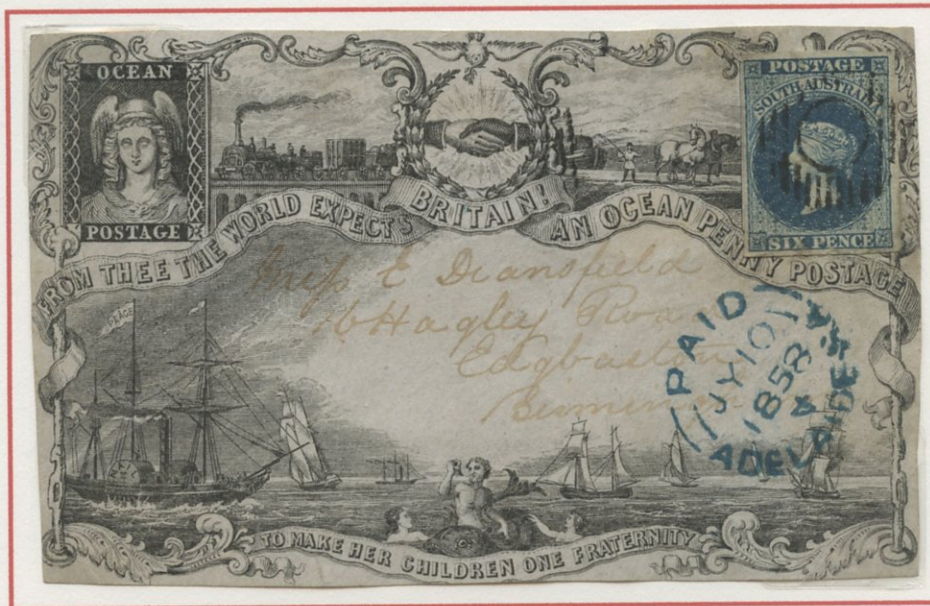 OCEAN
POSTAGE
POSTAGE
SOUTH AUSTRALIA
SIX PENCE
FROM THEE THE WORLD EXPECTS BRITAIN! AN OCEAN PENNY POSTAGE
PEACE
Miss E Deansfield
Hagley Roa
Edgbaston
PAID
JY 10
1858
ADELAIDE
TO MAKE HER CHILDREN ONE FRATERNITY